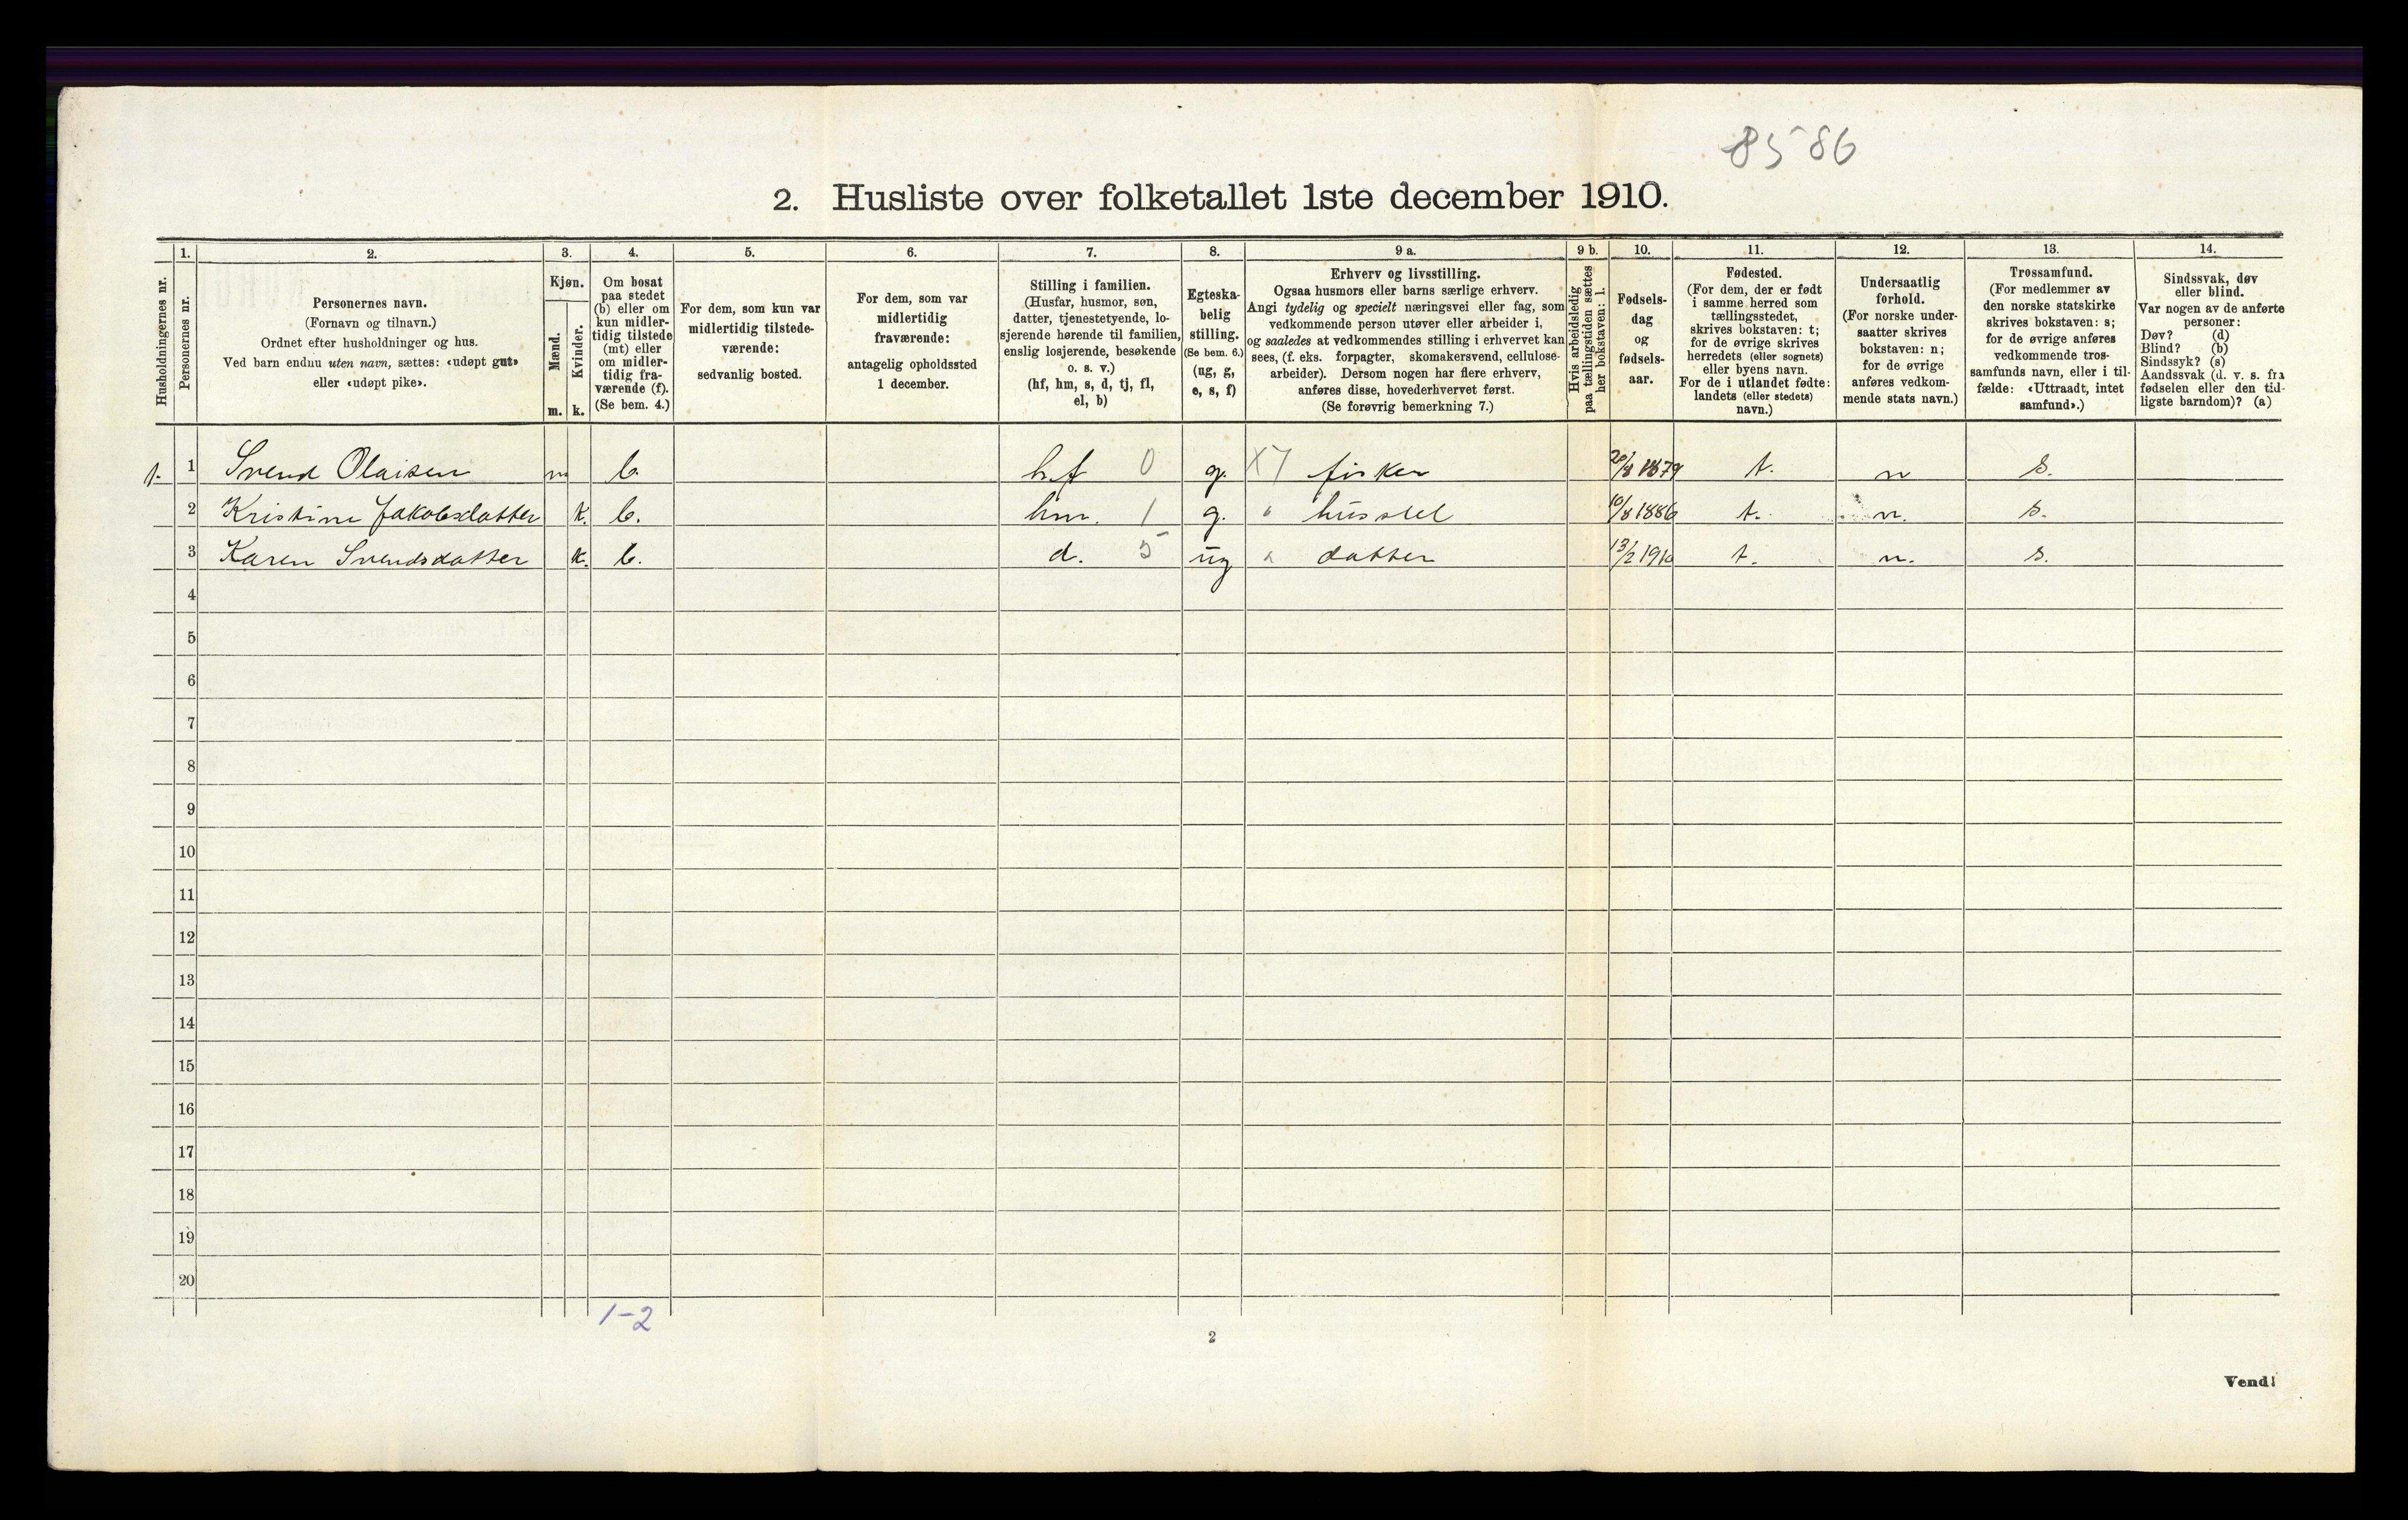 8586
2. Husliste over folketallet 1ste december 1910.
Husholdningernes nr.
1.
Personernes nr.
2.
Personernes navn.
(Fornavn og tilnavn.)
Ordnet efter husholdninger og hus.
Ved barn endnu uten navn, sættes: «udøpt gut»
eller «udøpt pike».
3.
Kjøn.
Mænd.
m.
Kvinder.
k.
4.
Om bosat
paa stedet
(b) eller om
kun midler-
tidig tilstede
(mt) eller
om midler-
tidig fra-
værende (f).
(Se bem. 4.)
5.
For dem, som kun var
midlertidig tilstede-
værende:
sedvanlig bosted.
6.
For dem, som var
midlertidig
fraværende:
antagelig opholdssted
1 december.
7.
Stilling i familien.
(Husfar, husmor, søn,
datter, tjenestetyende, lo-
sjerende hørende til familien,
enslig losjerende, besøkende
o. s. v.)
(hf, hm, s, d, tj, fl,
el, b)
8.
Egteska-
belig
stilling.
(Se bem. 6.)
(ug, g,
e, s, f)
9 a.
Erhverv og livsstilling.
Ogsaa husmors eller barns særlige erhverv.
Angi tydelig og specielt næringsvei eller fag, som
vedkommende person utøver eller arbeider i,
og saaledes at vedkommendes stilling i erhvervet kan
sees, (f. eks. forpagter, skomakersvend, cellulose-
arbeider). Dersom nogen har flere erhverv,
anføres disse, hovederhvervet først.
(Se forøvrig bemerkning 7.)
9 b.
Hvis arbeidsledig
paa tællingstiden sættes
her bokstaven: l.
10.
Fødsels-
dag
og
fødsels-
aar.
11.
Fødested.
(For dem, der er født
i samme herred som
tællingsstedet,
skrives bokstaven: t;
for de øvrige skrives
herredets (eller sognets)
eller byens navn.
For de i utlandet fødte:
landets (eller stedets)
navn.)
12.
Undersaatlig
forhold.
(For norske under-
saatter skrives
bokstaven: n;
for de øvrige
anføres vedkom-
mende stats navn.)
13.
Trossamfund.
(For medlemmer av
den norske statskirke
skrives bokstaven: s;
for de øvrige anføres
vedkommende tros-
samfunds navn, eller i til-
fælde: «Uttraadt, intet
samfund».)
14.
Sindssvak, døv
eller blind.
Var nogen av de anførte
personer:
Døv? (d)
Blind? (b)
Sindssyk? (s)
Aandssvak (d. v. s. fra
fødselen eller den tid-
ligste barndom)? (a)
1. 1 Svend Olaisen m b. hf 0 g. X7 fisker 20/8 1879 t. n s.
2 Kristine Jakobsdatter k. b. hm. 1 g. " husstel 10/8 1886 t. n. s.
3 Karen Svendsdatter k. b. d. 5 ug " datter 13/2 1910 t. n. s.
4
5
6
7
8
9
10
11
12
13
14
15
16
17
18
19
20
1-2
2
Vend!